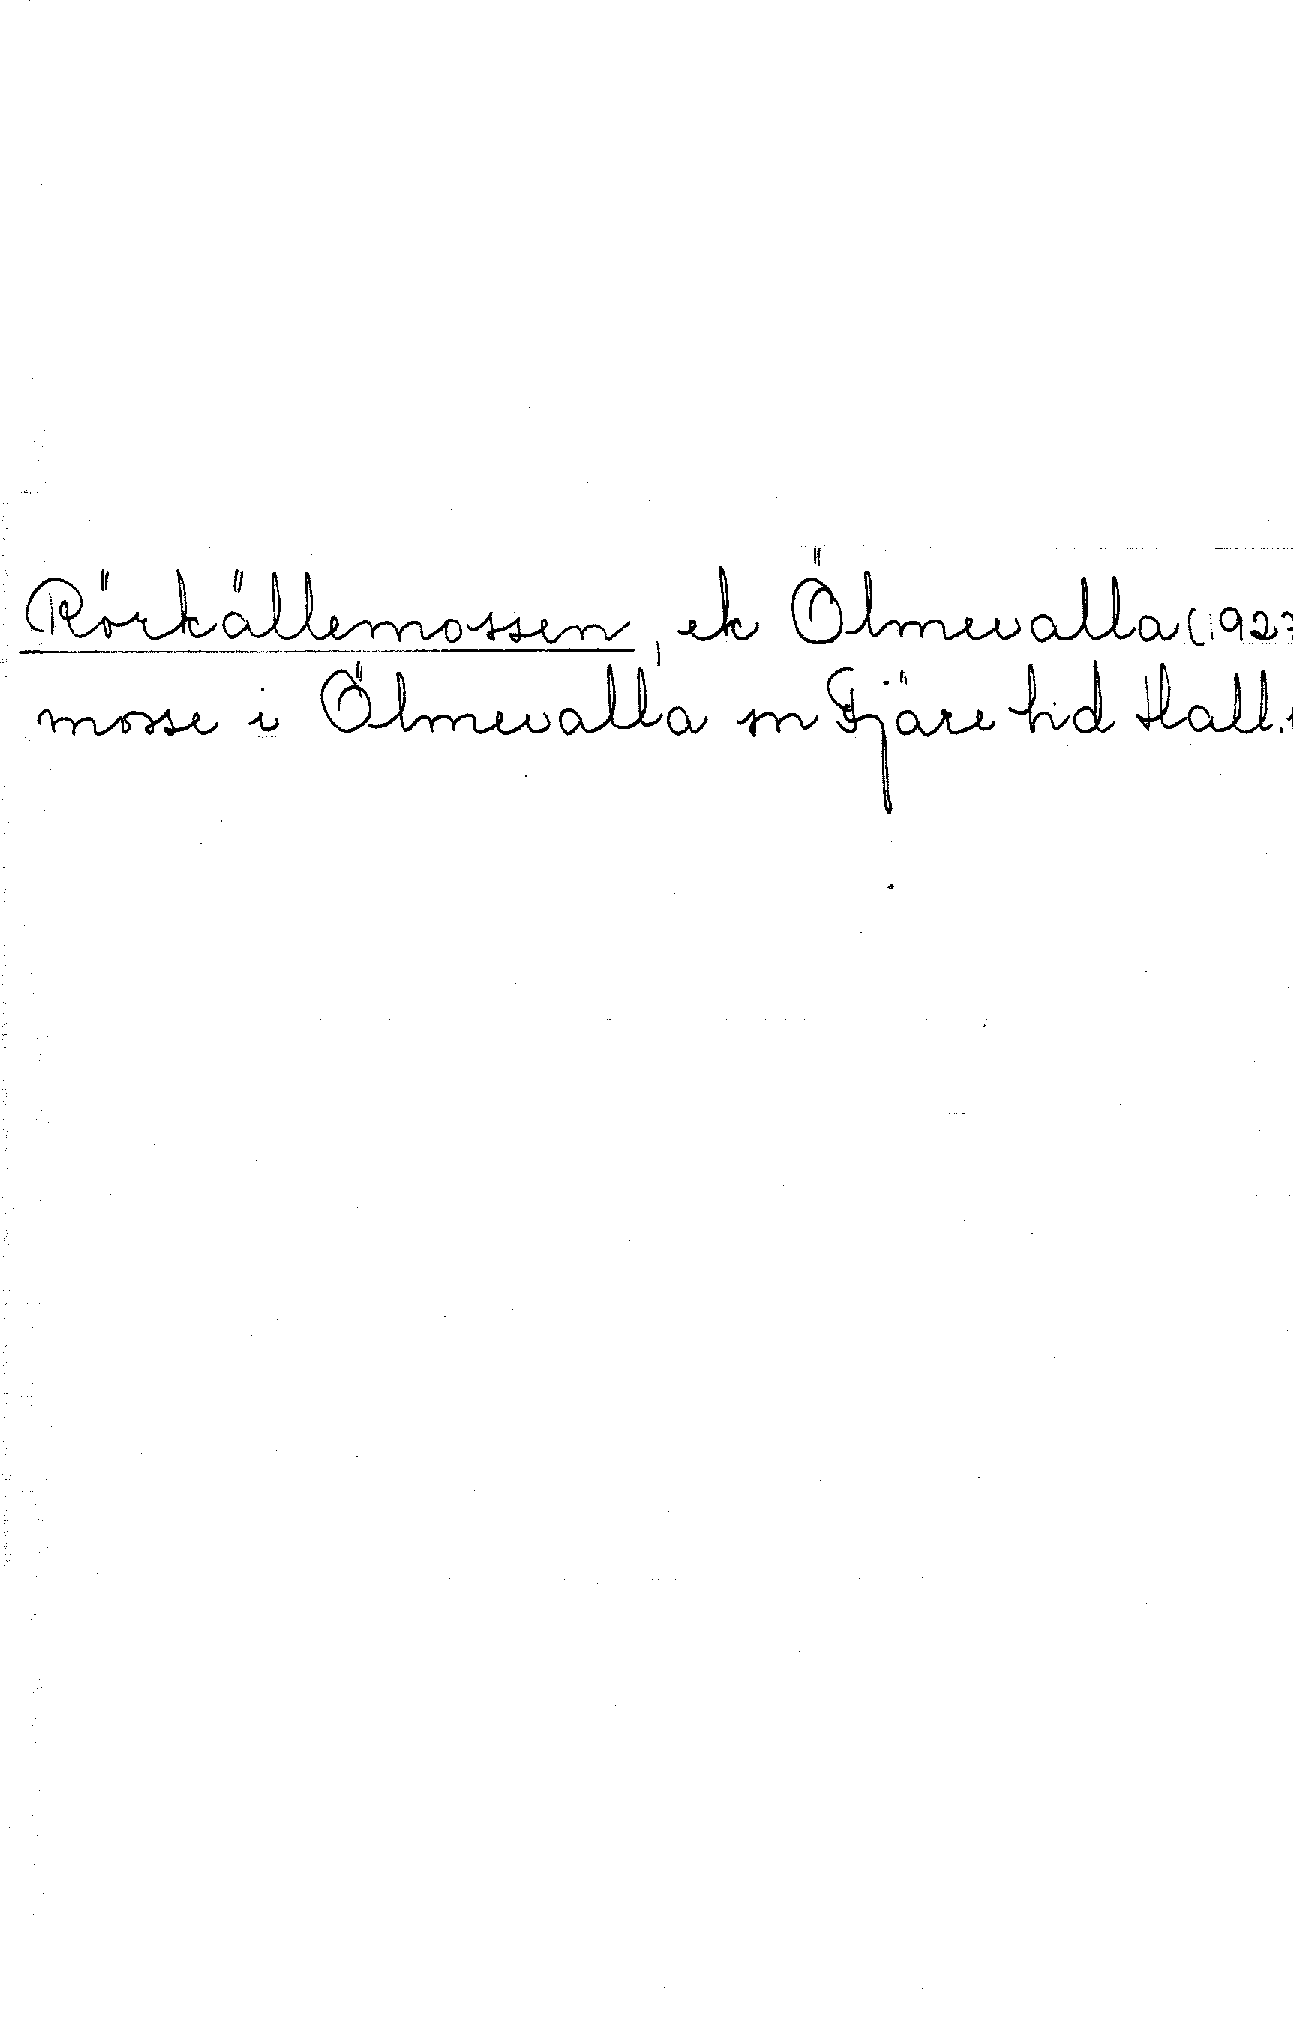 Rörkällemossen, ek Ölmevalla (1927
mosse i Ölmevalla sn Fjäre hd Hall.